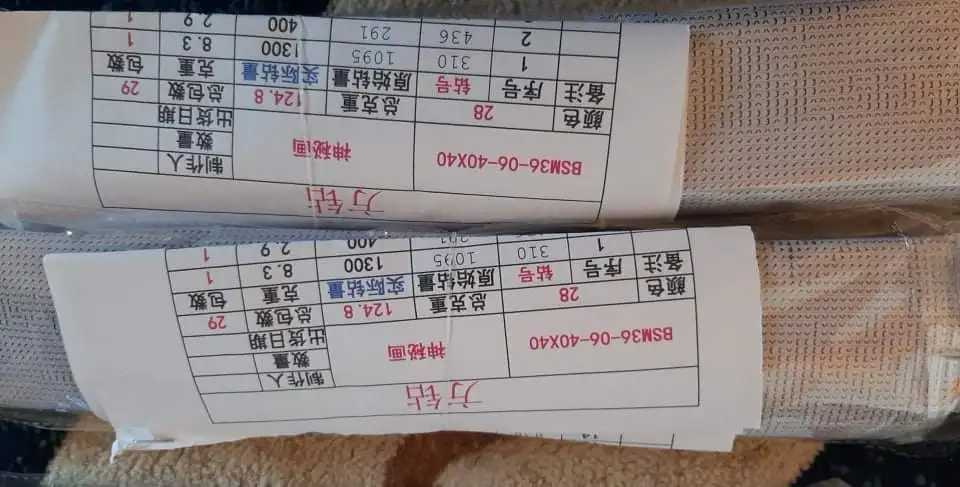 方钻
制作人
BSM36-06-40X40 神秘画 数量
出货日期
颜色 28 总克重 124.8 总包数 29
备注 序号 钻号 原始钻量 实际钻量 克重 包数
1 310 1095 1300 8.3 1
291 400 2.9 1
方钻
制作人
BSM36-06-40X40 神秘画 数量
出货日期
颜色 28 总克重 124.8 总包数 29
备注 序号 钻号 原始钻量 实际钻量 克重 包数
1 310 1095 1300 8.3 1
2 436 291 400 2.9 1